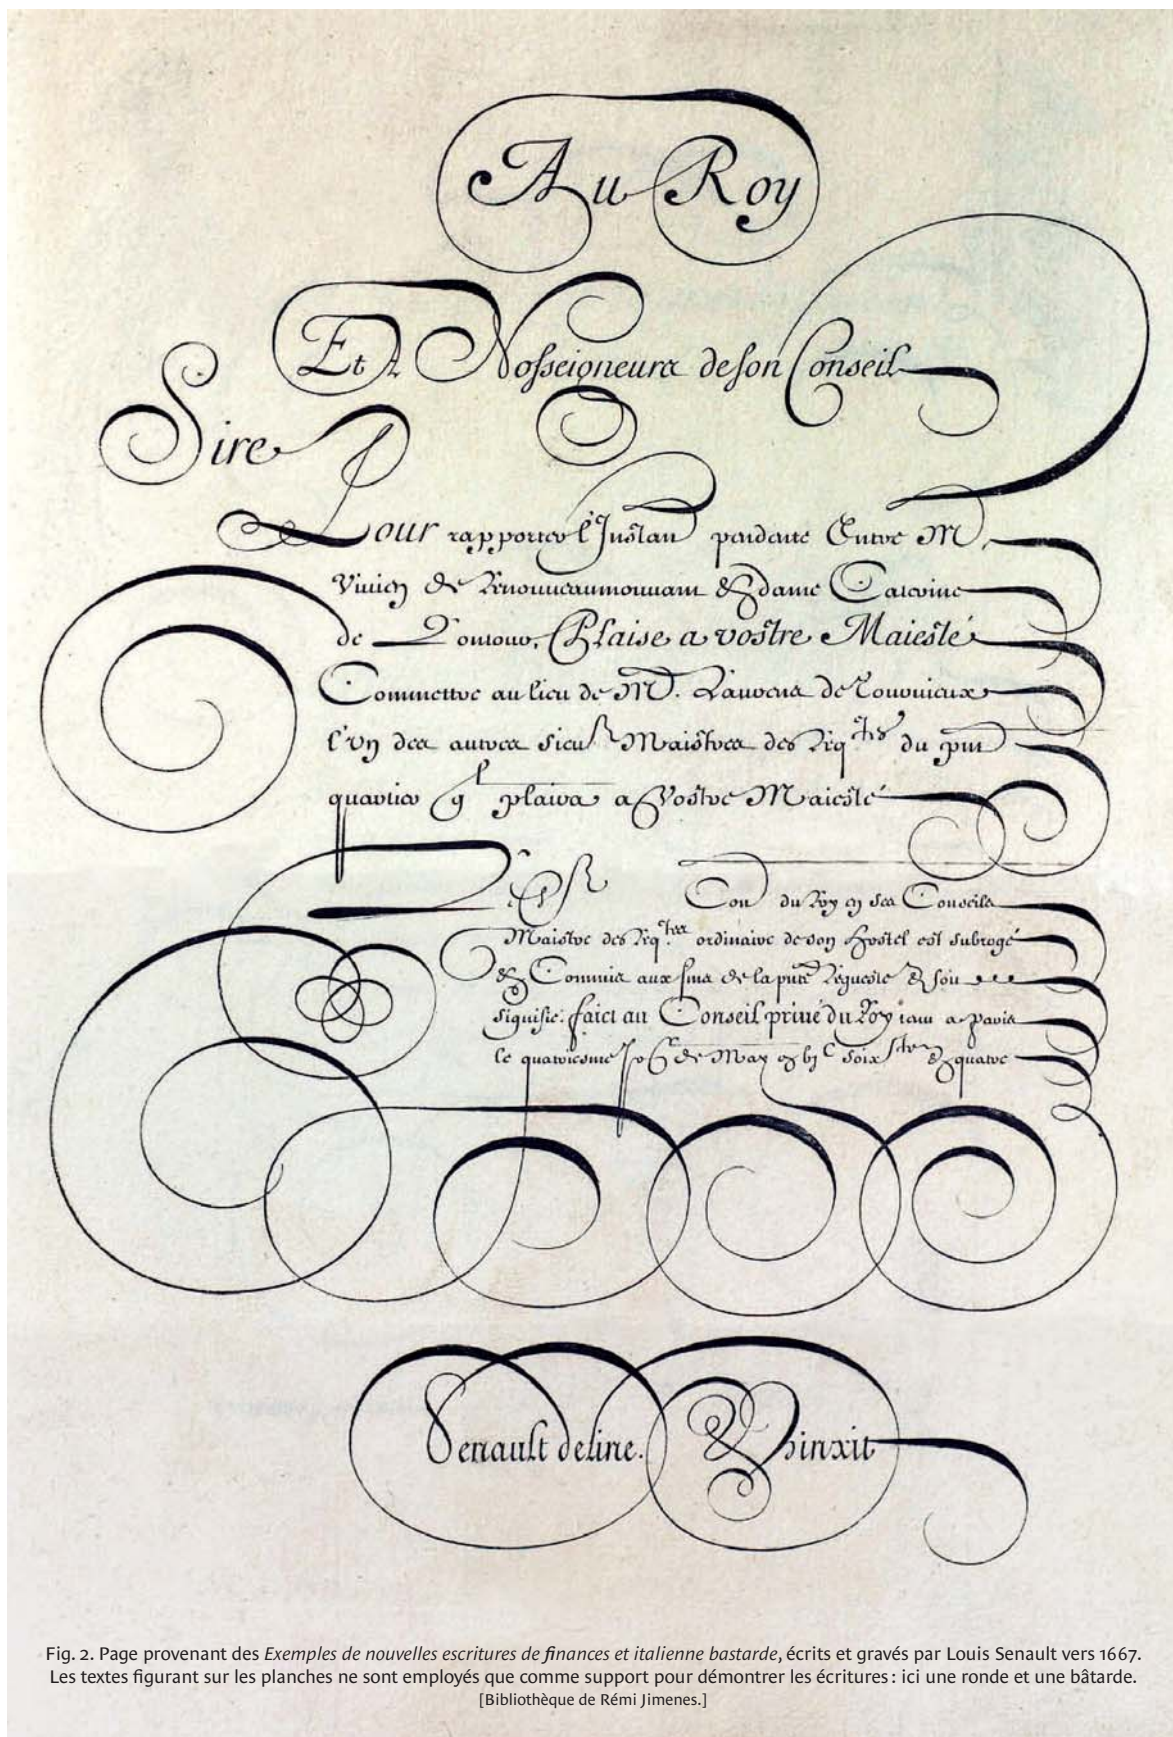 Au Roy
Et A Nosseigneurs de son Conseil
Sire
Pour rapporter l'Instan pendante Entre M
Vivien de & dame Catevine
de Plaise a vostre Maiesté
Commettre au lieu de M. de
l'un des autres sieu Maistres des Req.tes du pnt
quartier ql plaira a Vostre Maiesté
Le Sr Con du Roy en ses Conseils
Maistre des Req.tes ordinaire de son hostel est subrogé
& Commis aux fins de la pnte Requeste & soit
signifié. faict au Conseil privé du Roy tenu a Paris
le quatriesme Jor de May gbjC soixte & quatre
Senault deline. & Pinxit
Fig. 2. Page provenant des Exemples de nouvelles escritures de finances et italienne bastarde, écrits et gravés par Louis Senault vers 1667.
Les textes figurant sur les planches ne sont employés que comme support pour démontrer les écritures : ici une ronde et une bâtarde.
[Bibliothèque de Rémi Jimenes.]